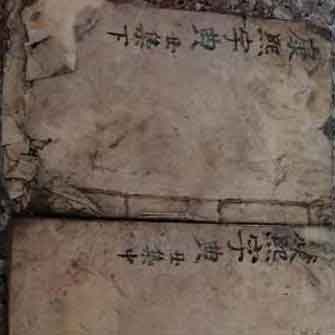 康熙字典 丑集下
康熙字典 丑集中